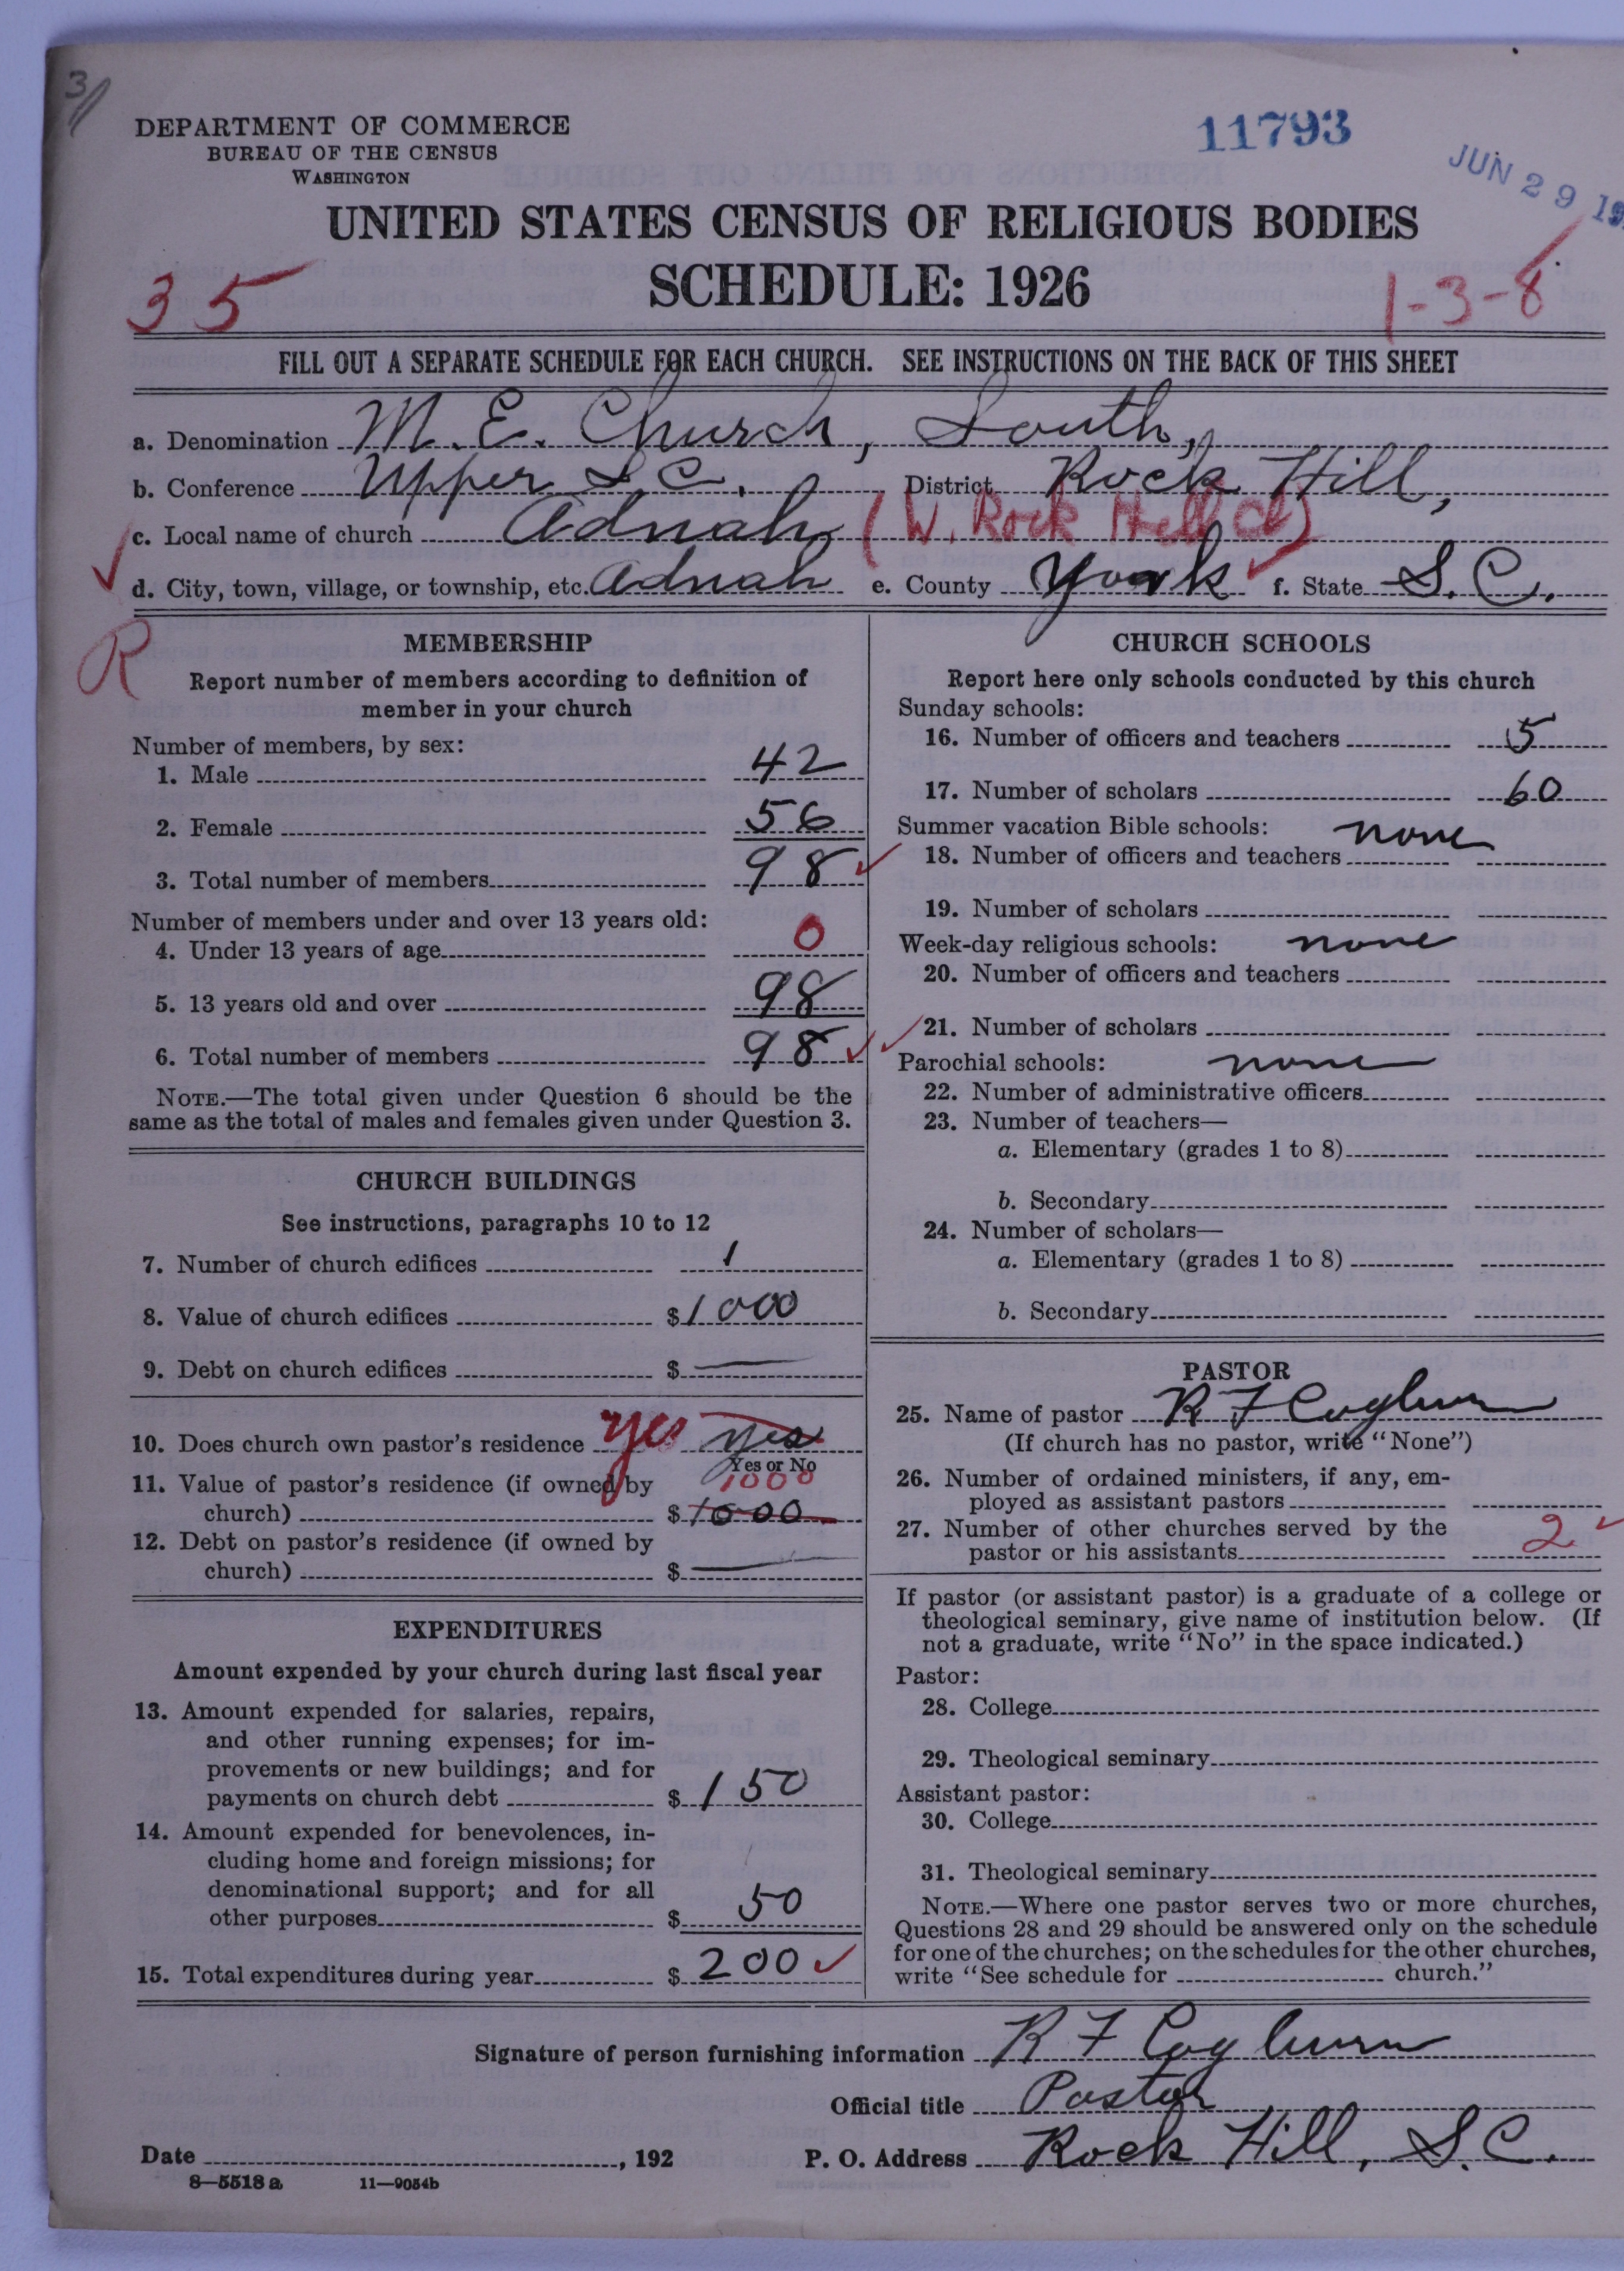 3
DEPARTMENT OF COMMERCE
BUREAU OF THE CENSUS
WASHINGTON
11793
JUN 29 19
UNITED STATES CENSUS OF RELIGIOUS BODIES
SCHEDULE: 1926
35
1-3-8
FILL OUT A SEPARATE SCHEDULE FOR EACH CHURCH. SEE INSTRUCTIONS ON THE BACK OF THIS SHEET
a. Denomination M. E. Church, South,
b. Conference Upper S C. District Rock Hill,
c. Local name of church Adnah (W. Rock Hill Ct)
d. City, town, village, or township, etc. Adnah e. County York f. State S. C.
R
MEMBERSHIP
Report number of members according to definition of
member in your church
Number of members, by sex:
1. Male 42
2. Female 56
3. Total number of members 98
Number of members under and over 13 years old:
4. Under 13 years of age 0
5. 13 years old and over 98
6. Total number of members 98
NOTE.—The total given under Question 6 should be the
same as the total of males and females given under Question 3.
CHURCH BUILDINGS
See instructions, paragraphs 10 to 12
7. Number of church edifices 1
8. Value of church edifices $1000
9. Debt on church edifices $ —
10. Does church own pastor's residence yes yes
Yes or No
11. Value of pastor's residence (if owned by 1000
church) $1000
12. Debt on pastor's residence (if owned by
church) $ —
EXPENDITURES
Amount expended by your church during last fiscal year
13. Amount expended for salaries, repairs,
and other running expenses; for im-
provements or new buildings; and for
payments on church debt $150
14. Amount expended for benevolences, in-
cluding home and foreign missions; for
denominational support; and for all
other purposes $ 50
15. Total expenditures during year $200
CHURCH SCHOOLS
Report here only schools conducted by this church
Sunday schools:
16. Number of officers and teachers 5
17. Number of scholars 60
Summer vacation Bible schools: none
18. Number of officers and teachers
19. Number of scholars
Week-day religious schools: none
20. Number of officers and teachers
21. Number of scholars
Parochial schools: none
22. Number of administrative officers
23. Number of teachers—
a. Elementary (grades 1 to 8)
b. Secondary
24. Number of scholars—
a. Elementary (grades 1 to 8)
b. Secondary
PASTOR
25. Name of pastor R F Cogburn
(If church has no pastor, write "None")
26. Number of ordained ministers, if any, em-
ployed as assistant pastors
27. Number of other churches served by the
pastor or his assistants 2
If pastor (or assistant pastor) is a graduate of a college or
theological seminary, give name of institution below. (If
not a graduate, write "No" in the space indicated.)
Pastor:
28. College
29. Theological seminary
Assistant pastor:
30. College
31. Theological seminary
NOTE.—Where one pastor serves two or more churches,
Questions 28 and 29 should be answered only on the schedule
for one of the churches; on the schedules for the other churches,
write "See schedule for church."
Signature of person furnishing information R F Cogburn
Official title Pastor
Date , 192 P. O. Address Rock Hill, S.C.
8—5518 a 11—9054b